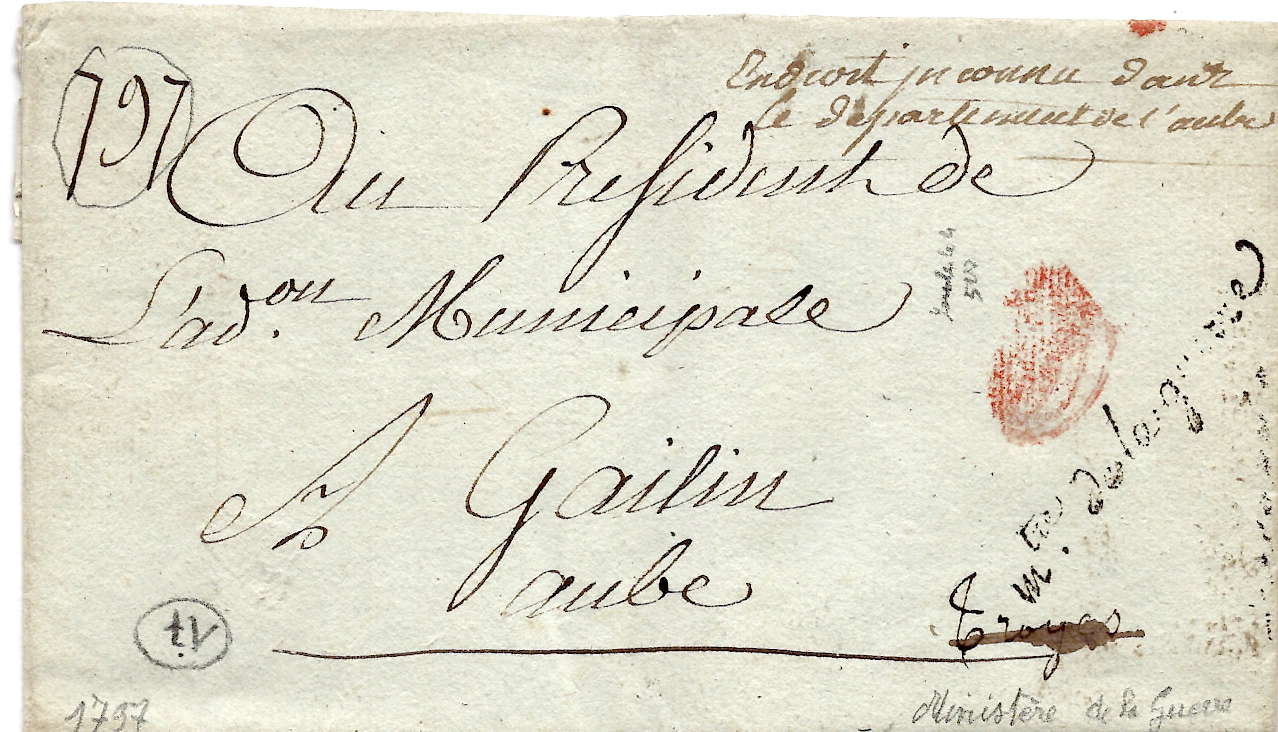 797
Endroit inconnu dans
le département de l'aube
Au President de
L'ad.on Municipale
A Gailin
aube
Troyes
m.tre de la guerre
17
1797
Ministère de la Guerre